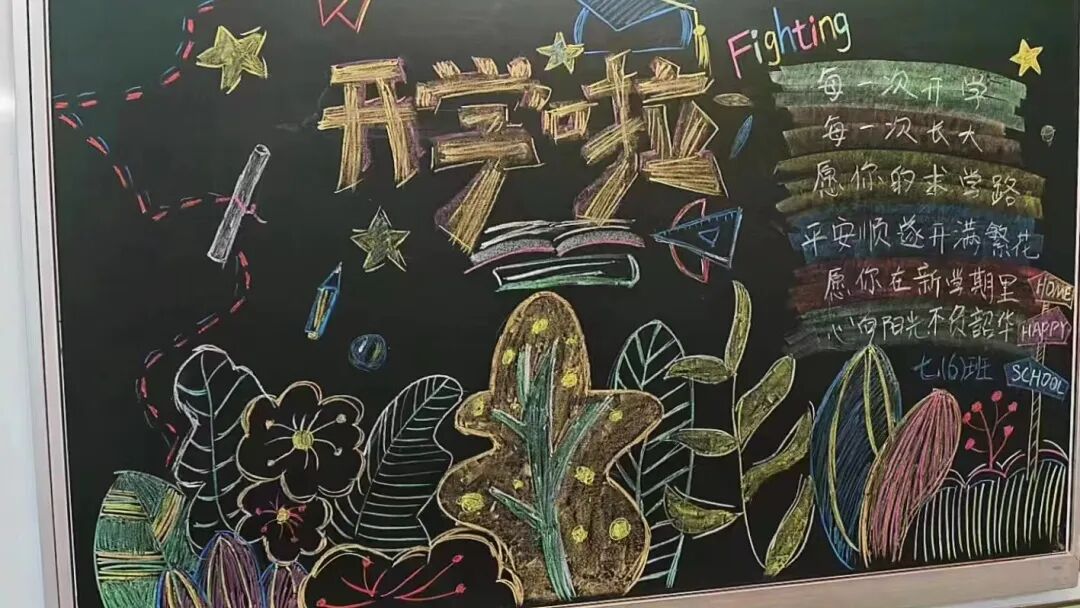 开学啦
Fighting
每一次开学
每一次长大
愿你的求学路
平安顺遂开满繁花
愿你在新学期里
心向阳光不负韶华
七(6)班
HOME
HAPPY
SCHOOL